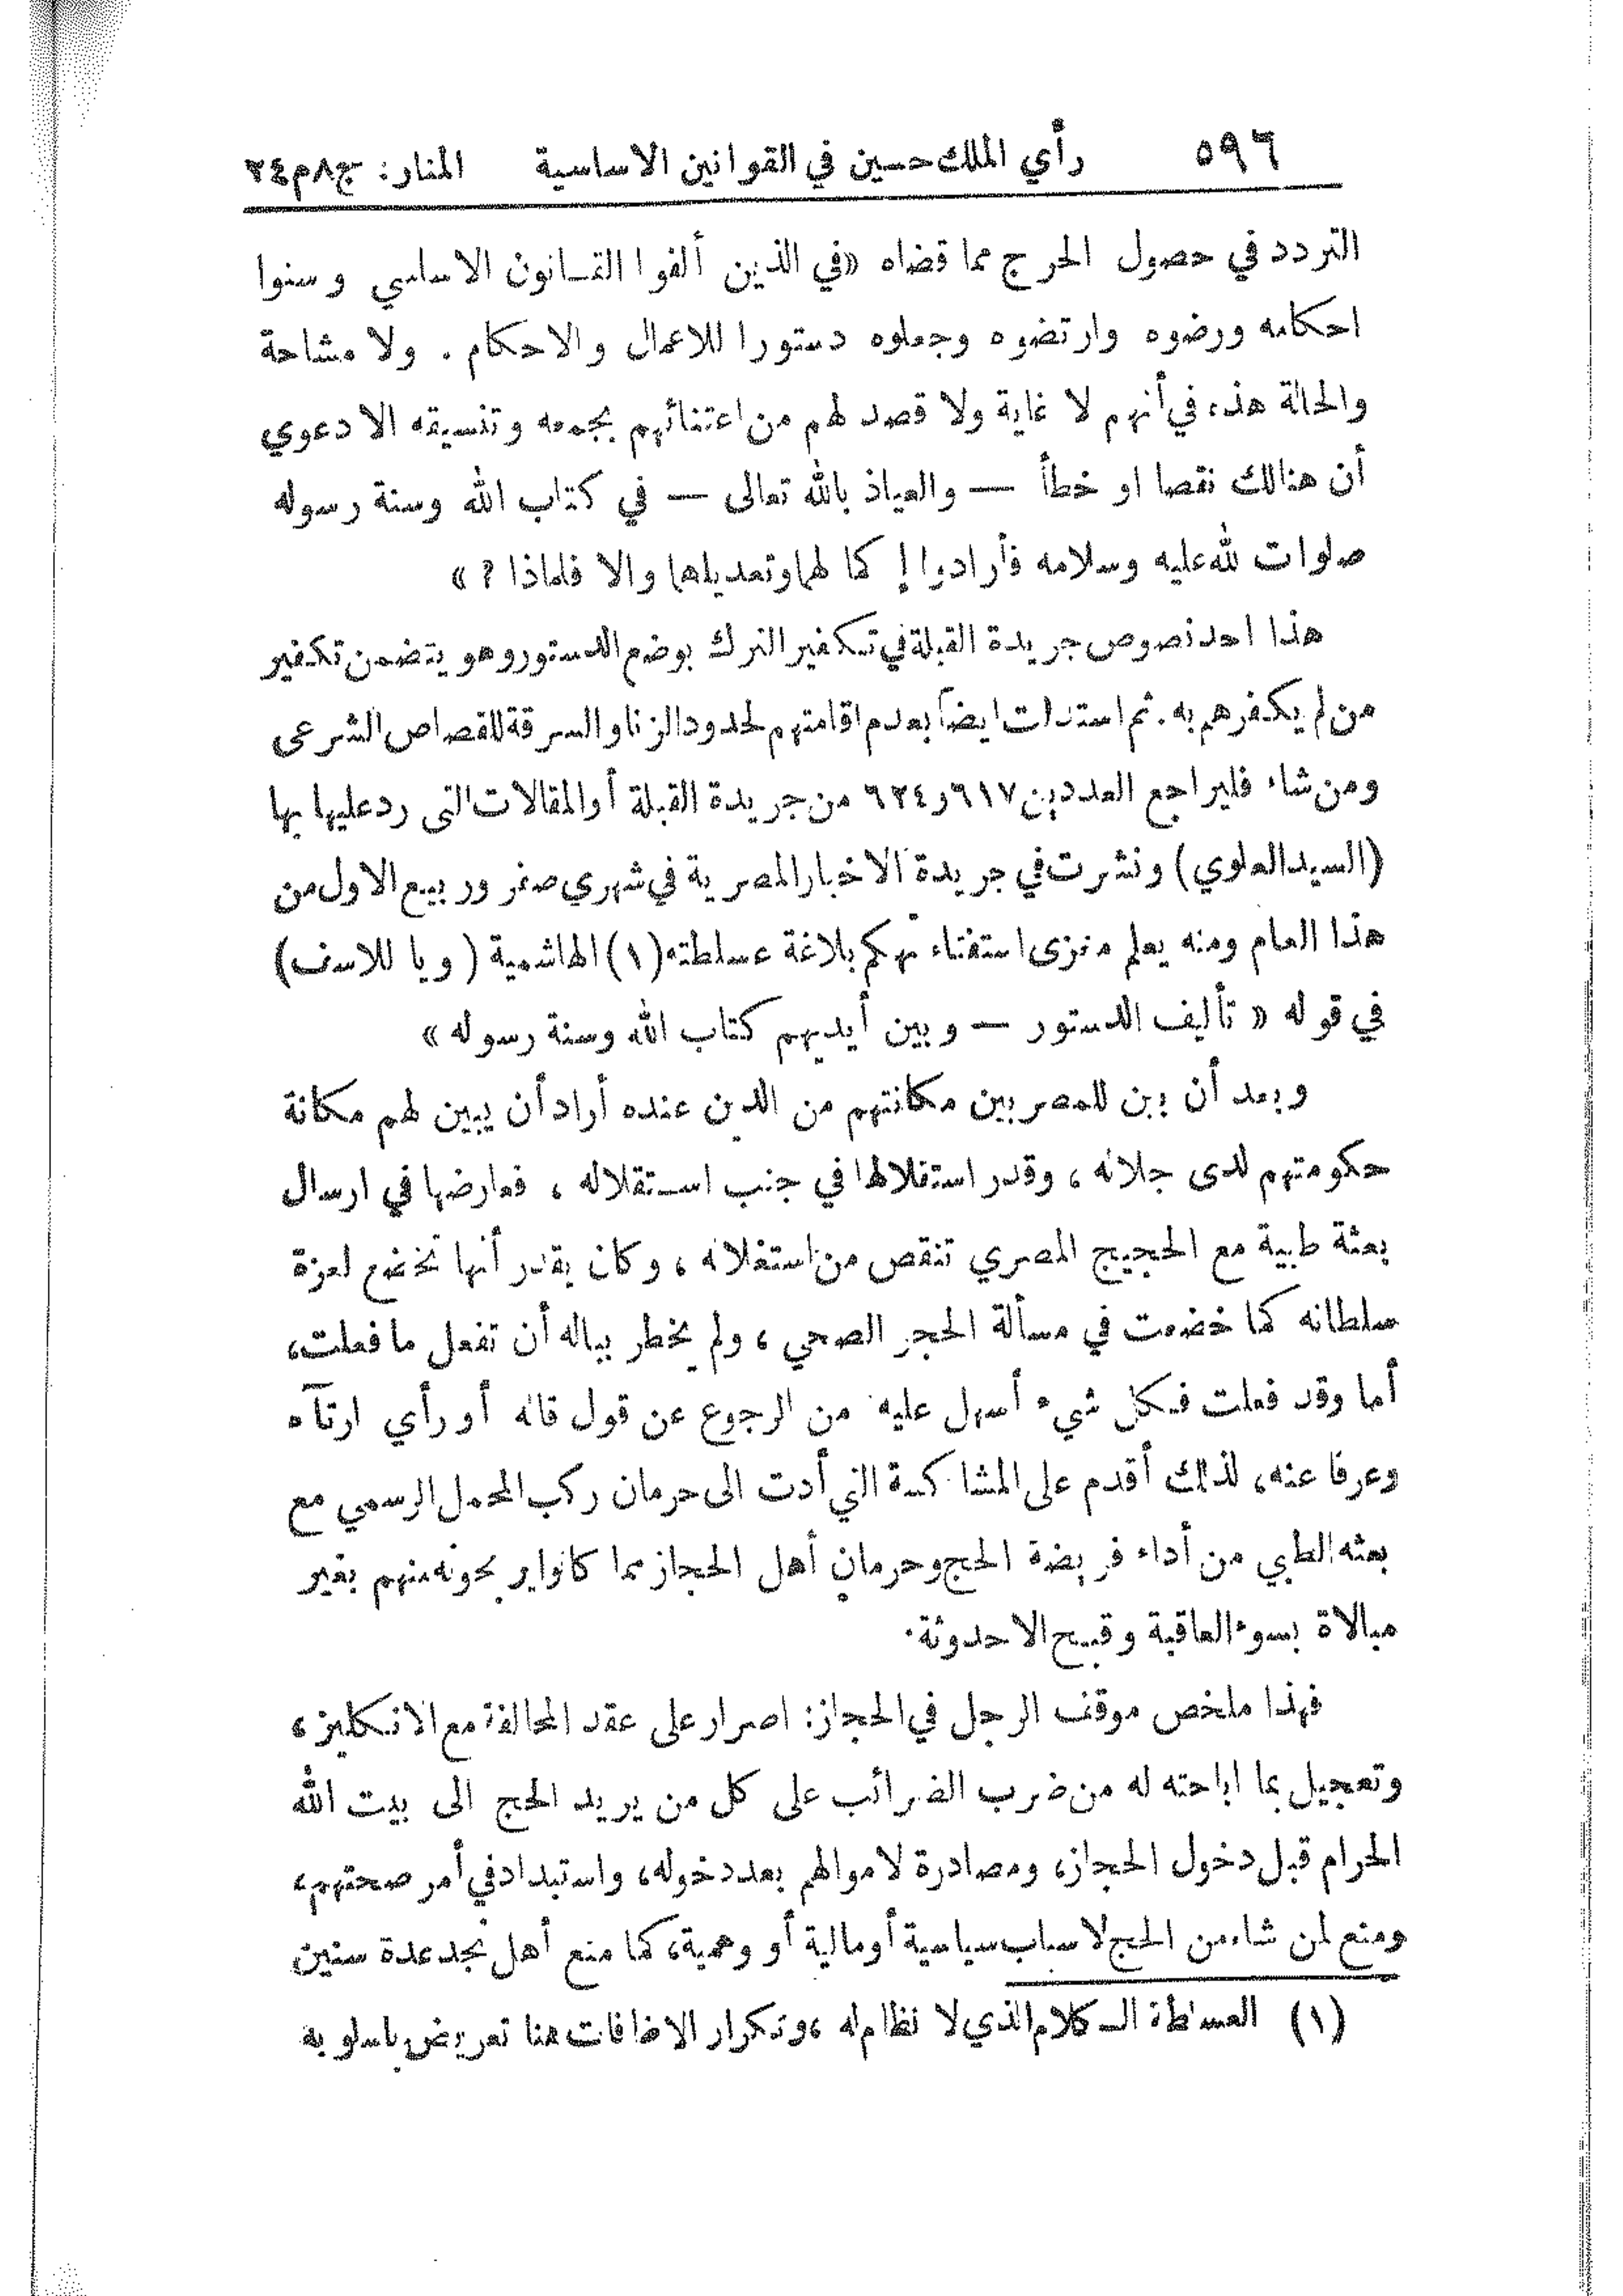 ٥٩٦ رأي الملك حسين في القوانين الاساسية المنار: ج٨م٢٤
التردد في حصول الحرج مما قضاه «في الذين ألفوا القانون الاساسي وسنوا
احكامه ورضوه وارتضوه وجعلوه دستورا للاعمال والاحكام . ولا مشاحة
والحالة هذه في أنهم لا غاية ولا قصد لهم من اعتنائهم بجمعه وتنسيقه الا دعوي
أن هنالك نقصا او خطأ — والعياذ بالله تعالى — في كتاب الله وسنة رسوله
صلوات لله عليه وسلامه فأرادوا إكمالهما وتعديلهما والا فلماذا ؟ »
هذا احد نصوص جريدة القبلة في تكفير الترك بوضع الدستور وهو يتضمن تكفير
من لم يكفرهم به . ثم استدلت ايضاً بعدم اقامتهم لحدود الزنا والسرقة للقصاص الشرعى
ومن شاء فليراجع العددين ٦١٧ و٦٢٤ من جريدة القبلة أو المقالات التى رد عليها بها
(السيد العلوي) ونشرت في جريدة الاخبار المصرية في شهري صفر وربيع الاول من
هذا العام ومنه يعلم مغزى استفتاء تهكم بلاغة عسلطته (١) الهاشمية ( ويا للاسف )
في قوله « تأليف الدستور — وبين أيديهم كتاب الله وسنة رسوله »
وبعد أن بين للمصريين مكانتهم من الدين عنده أراد أن يبين لهم مكانة
حكومتهم لدى جلالته ، وقدر استقلالها في جنب استقلاله ، فعارضها في ارسال
بعثة طبية مع الحجيج المصري تنقص من استغلاله ، وكان يقدر أنها تخضع لعزة
سلطانه كما خضعت في مسألة الحجر الصحي ، ولم يخطر بباله أن تفعل ما فعلت،
أما وقد فعلت فكل شيء أسهل عليه من الرجوع عن قول قاله أو رأي ارتآه
وعرفا عنه، لذلك أقدم على المشاكسة التي أدت الى حرمان ركب المحمل الرسمي مع
بعثه الطبي من أداء فريضة الحج وحرمان أهل الحجاز مما كانوا يربحونه منهم بغير
مبالاة بسوء العاقبة وقبيح الاحدوثة.
فهذا ملخص موقف الرجل في الحجاز: اصرار على عقد المحالفة مع الانكليز ،
وتعجيل بما اباحته له من ضرب الضرائب على كل من يريد الحج الى بيت الله
الحرام قبل دخول الحجاز، ومصادرة لاموالهم بعد دخوله، واستبداد في أمر صحتهم،
ومنع لمن شاء من الحج لاسباب سياسية أو مالية أو وهمية، كما منع أهل نجد عدة سنين
(١) العسلطة الكلام الذي لا نظام له ، وتكرار الاضافات هنا تعريض باسلوبه